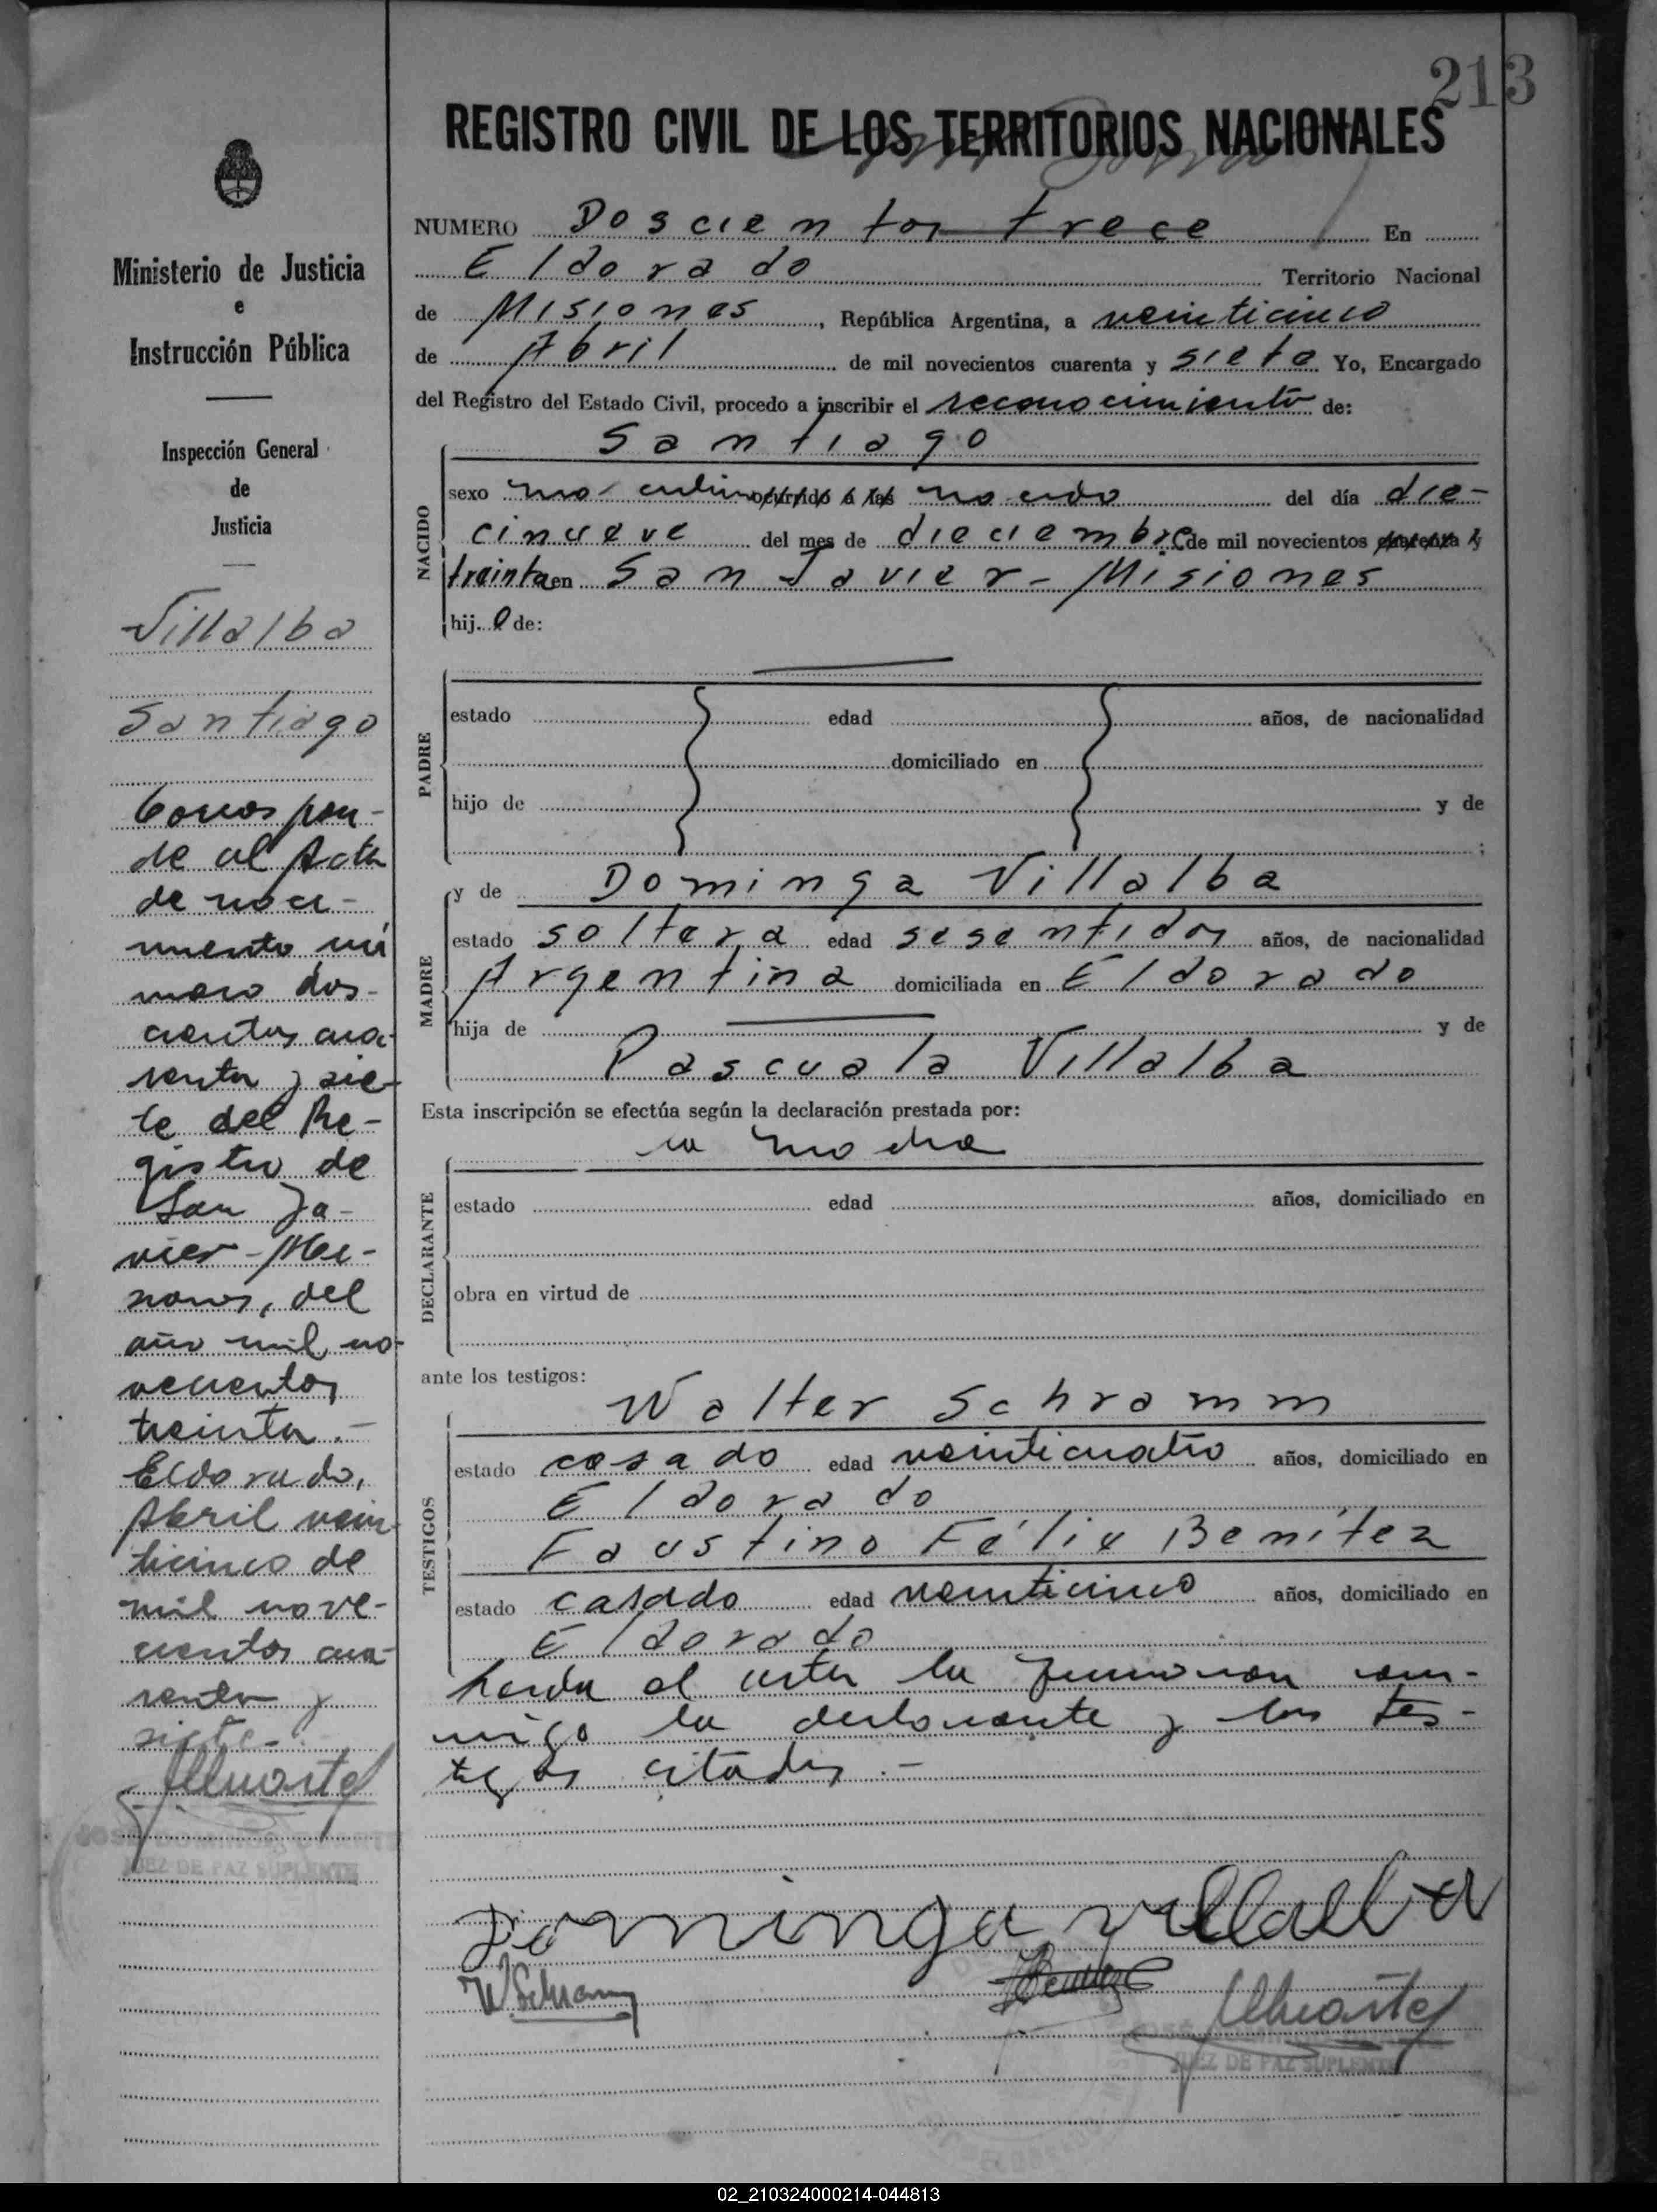 213
REGISTRO CIVIL DE LOS TERRITORIOS NACIONALES
NUMERO Doscientos trece En
Eldorado Territorio Nacional
de Misiones, República Argentina, a veinticinco
de Abril de mil novecientos cuarenta y siete Yo, Encargado
del Registro del Estado Civil, procedo a inscribir el reconocimiento de:
Santiago
NACIDO
sexo masculino ocurrido a las nacido del día die-
cinueve del mes de dieciembre de mil novecientos cuarenta y
treinta en San Javier - Misiones
hij.o de:
PADRE
estado edad años, de nacionalidad
domiciliado en
hijo de y de
;
MADRE
y de Dominga Villalba
estado soltera edad sesentidos años, de nacionalidad
Argentina domiciliada en Eldorado
hija de y de
Pascuala Villalba
Esta inscripción se efectúa según la declaración prestada por:
la madre
DECLARANTE
estado edad años, domiciliado en
obra en virtud de
ante los testigos:
TESTIGOS
Walter Schramm
estado casado edad veinticuatro años, domiciliado en
Eldorado
Faustino Félix Benítez
estado casado edad veinticinco años, domiciliado en
Eldorado
Leída el acta la firmaron con-
migo la declarante y los tes-
tigos citados.-
Dominga villalba
W. Schramm
JUEZ DE PAZ SUPLENTE
Ministerio de Justicia
e
Instrucción Pública
Inspección General
de
Justicia
Villalba
Santiago
Correspon-
de al Acta
de naci-
miento nú
mero dos-
cientos cua-
renta y sie-
te del Re-
gistro de
San Ja-
vier - Misi-
nones, del
año mil no-
vecientos
treinta.-
Eldorado,
Abril vein-
ticinco de
mil nove-
cientos cua-
renta y
siete.-
JUEZ DE PAZ SUPLENTE
02_210324000214-044813